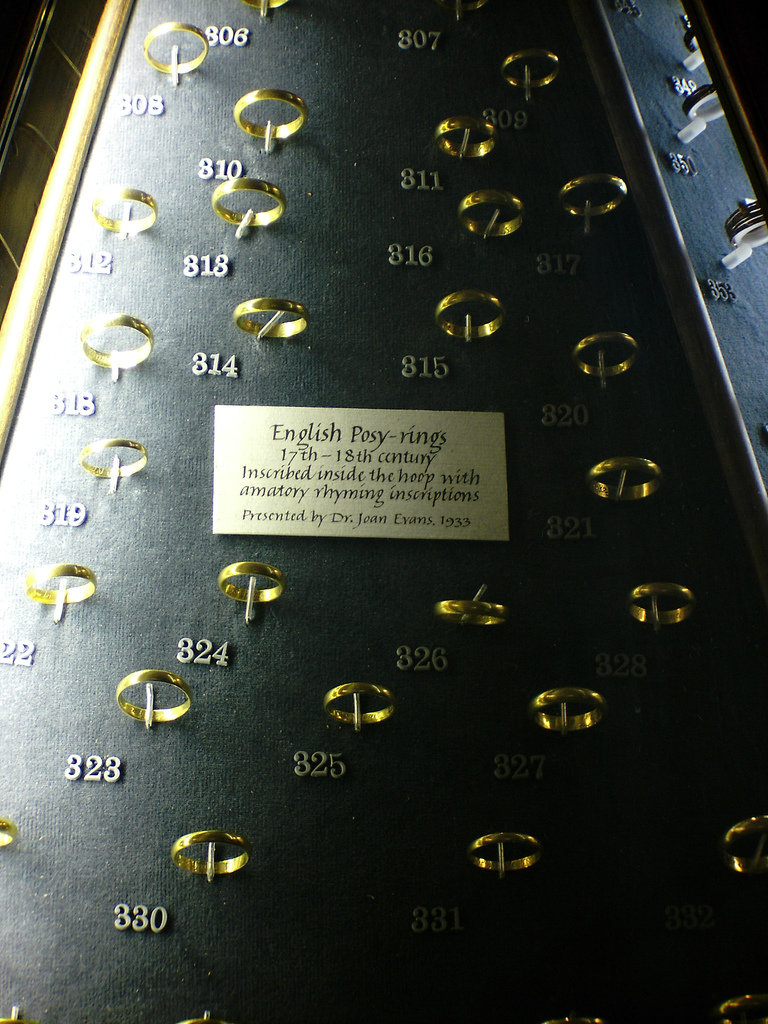 306
307
308
309
349
310
311
350
312
313
316
317
353
314
315
318
320
English Posy-rings
17th – 18th century
Inscribed inside the hoop with
amatory rhyming inscriptions
Presented by Dr. Joan Evans, 1933
319
321
22
324
326
328
323
325
327
330
331
332